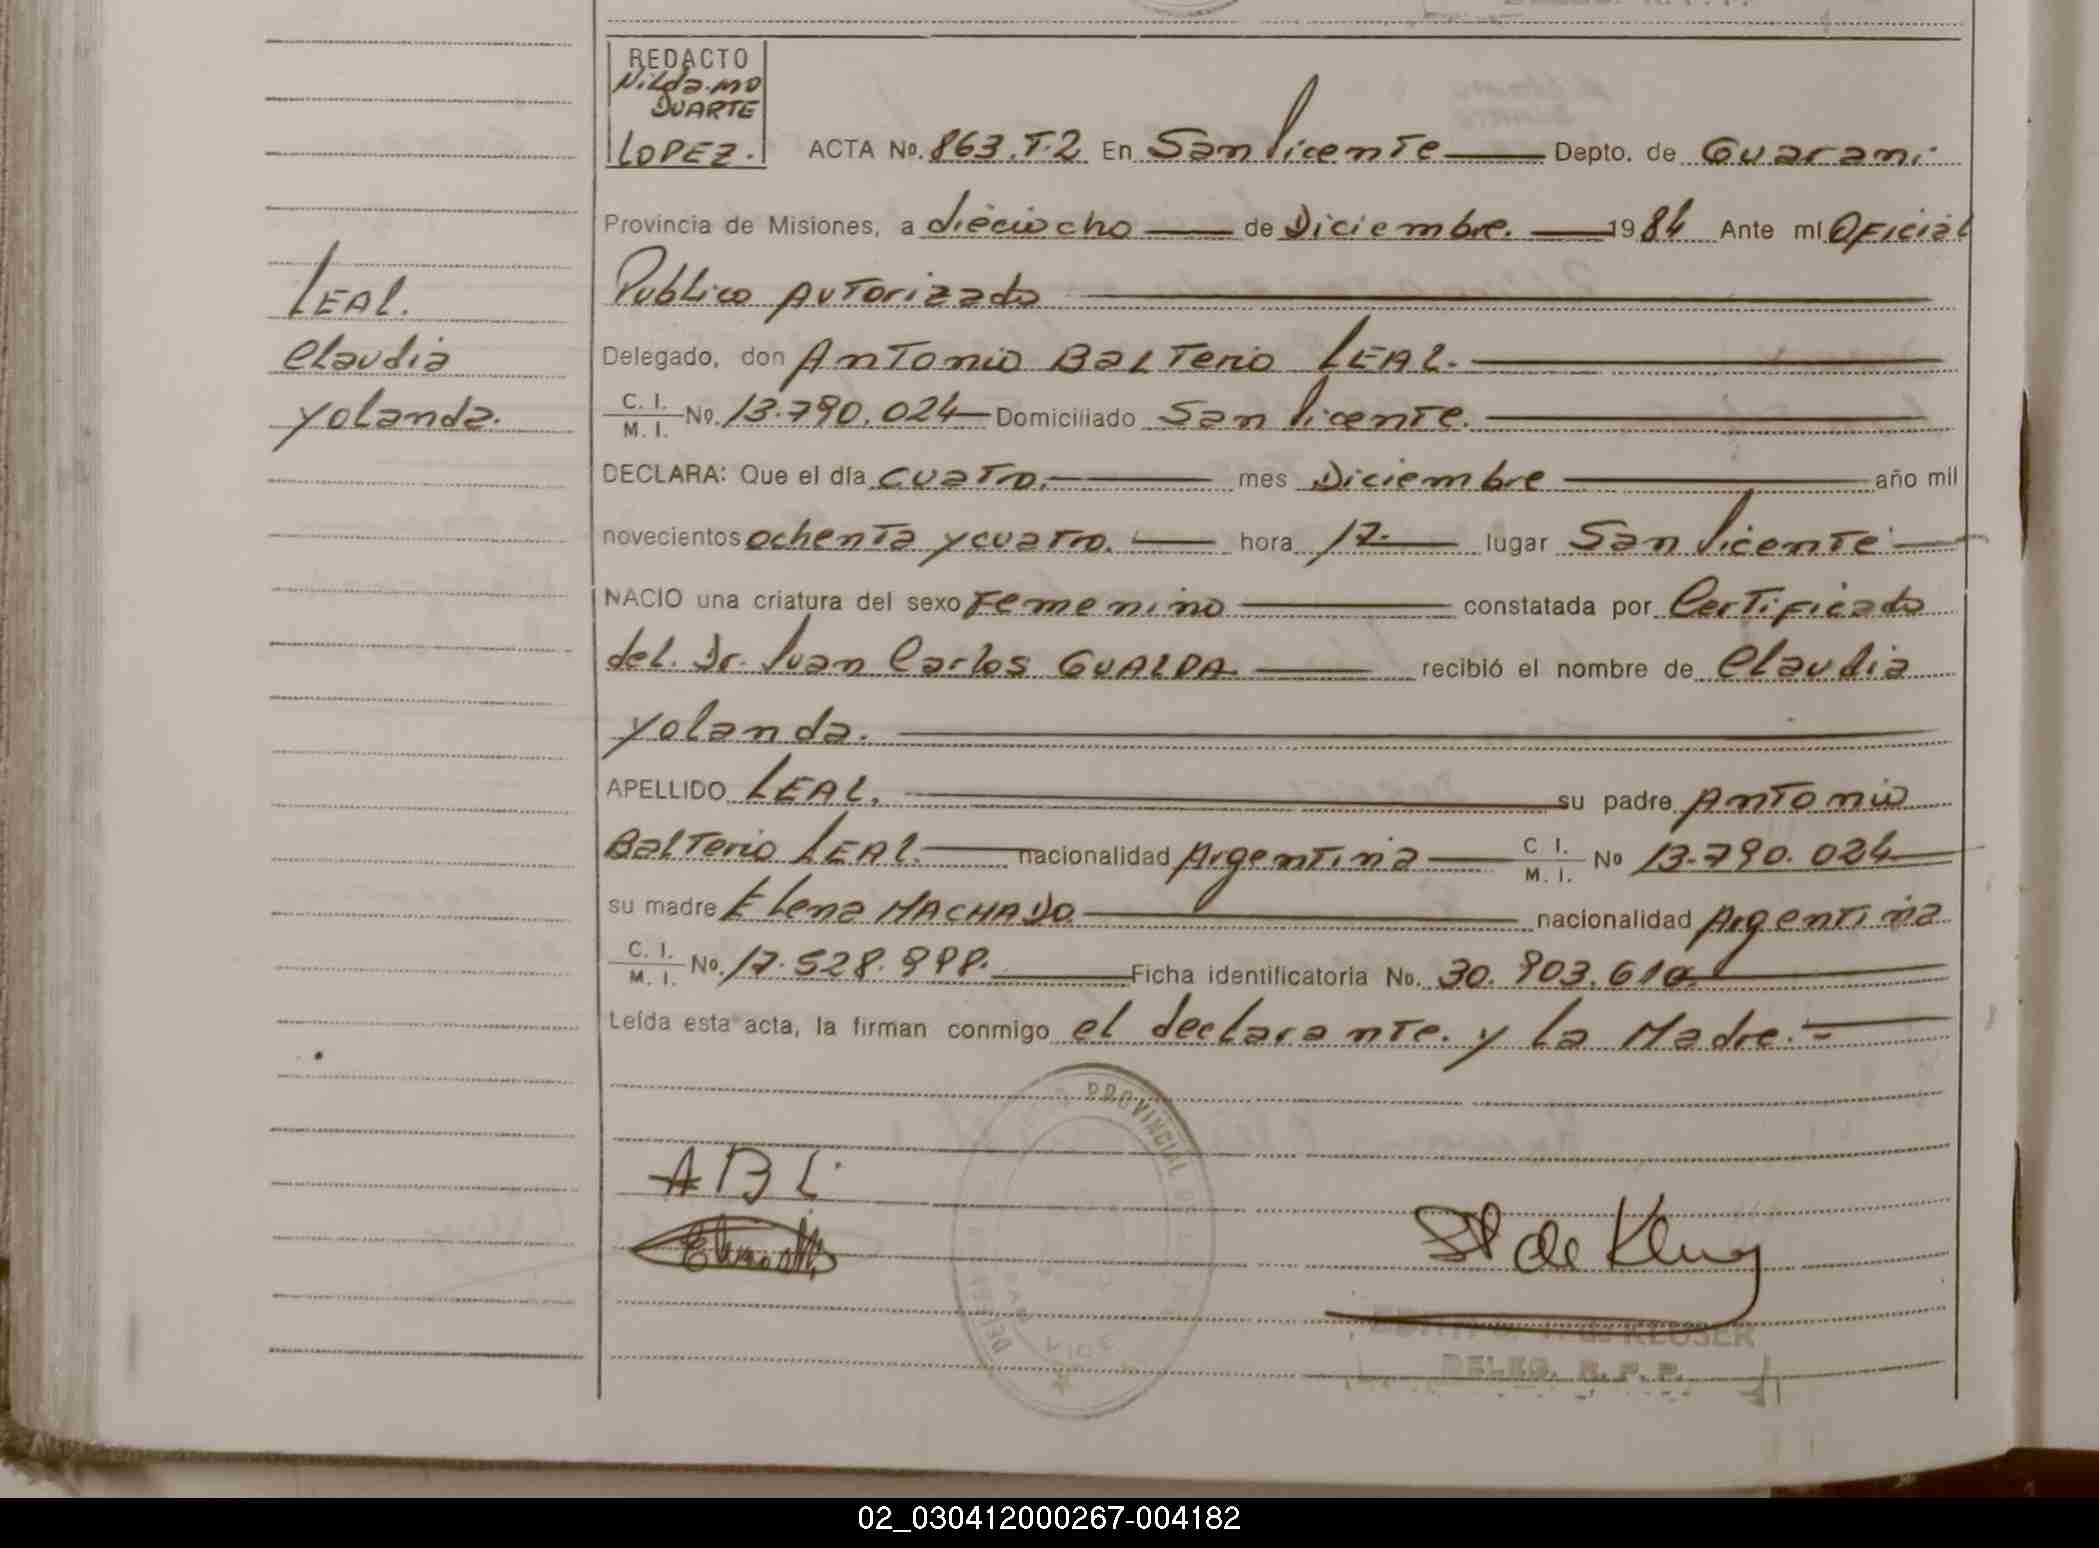 REDACTO
Nildamo
DUARTE
LOPEZ.
ACTA No. 863.T.2 En San Vicente Depto. de Guarani
Provincia de Misiones, a dieciocho de Diciembre. 1984 Ante mí Oficial
Publico Autorizado
LEAL.
Claudia
Yolanda.
Delegado, don Antonio Balterio LEAL.
C. I.
M. I. No. 13.790.024 Domiciliado San Vicente.
DECLARA: Que el día cuatro. mes Diciembre año mil
novecientos ochenta y cuatro. hora 17. lugar San Vicente
NACIO una criatura del sexo Femenino constatada por Certificado
del. Dr. Juan Carlos GUALDA recibió el nombre de Claudia
Yolanda.
APELLIDO LEAL. su padre Antonio
Balterio LEAL. nacionalidad Argentina C I.
M. I. No 13.790.024
su madre Elena MACHADO. nacionalidad Argentina
C. I.
M. I. No. 17.528.998. Ficha identificatoria No. 30.903.610.
Leída esta acta, la firman conmigo el declarante. y la Madre.=
PROVINCIAL
ABL
de KLUSER
DELEG. R. P. P.
02_030412000267-004182